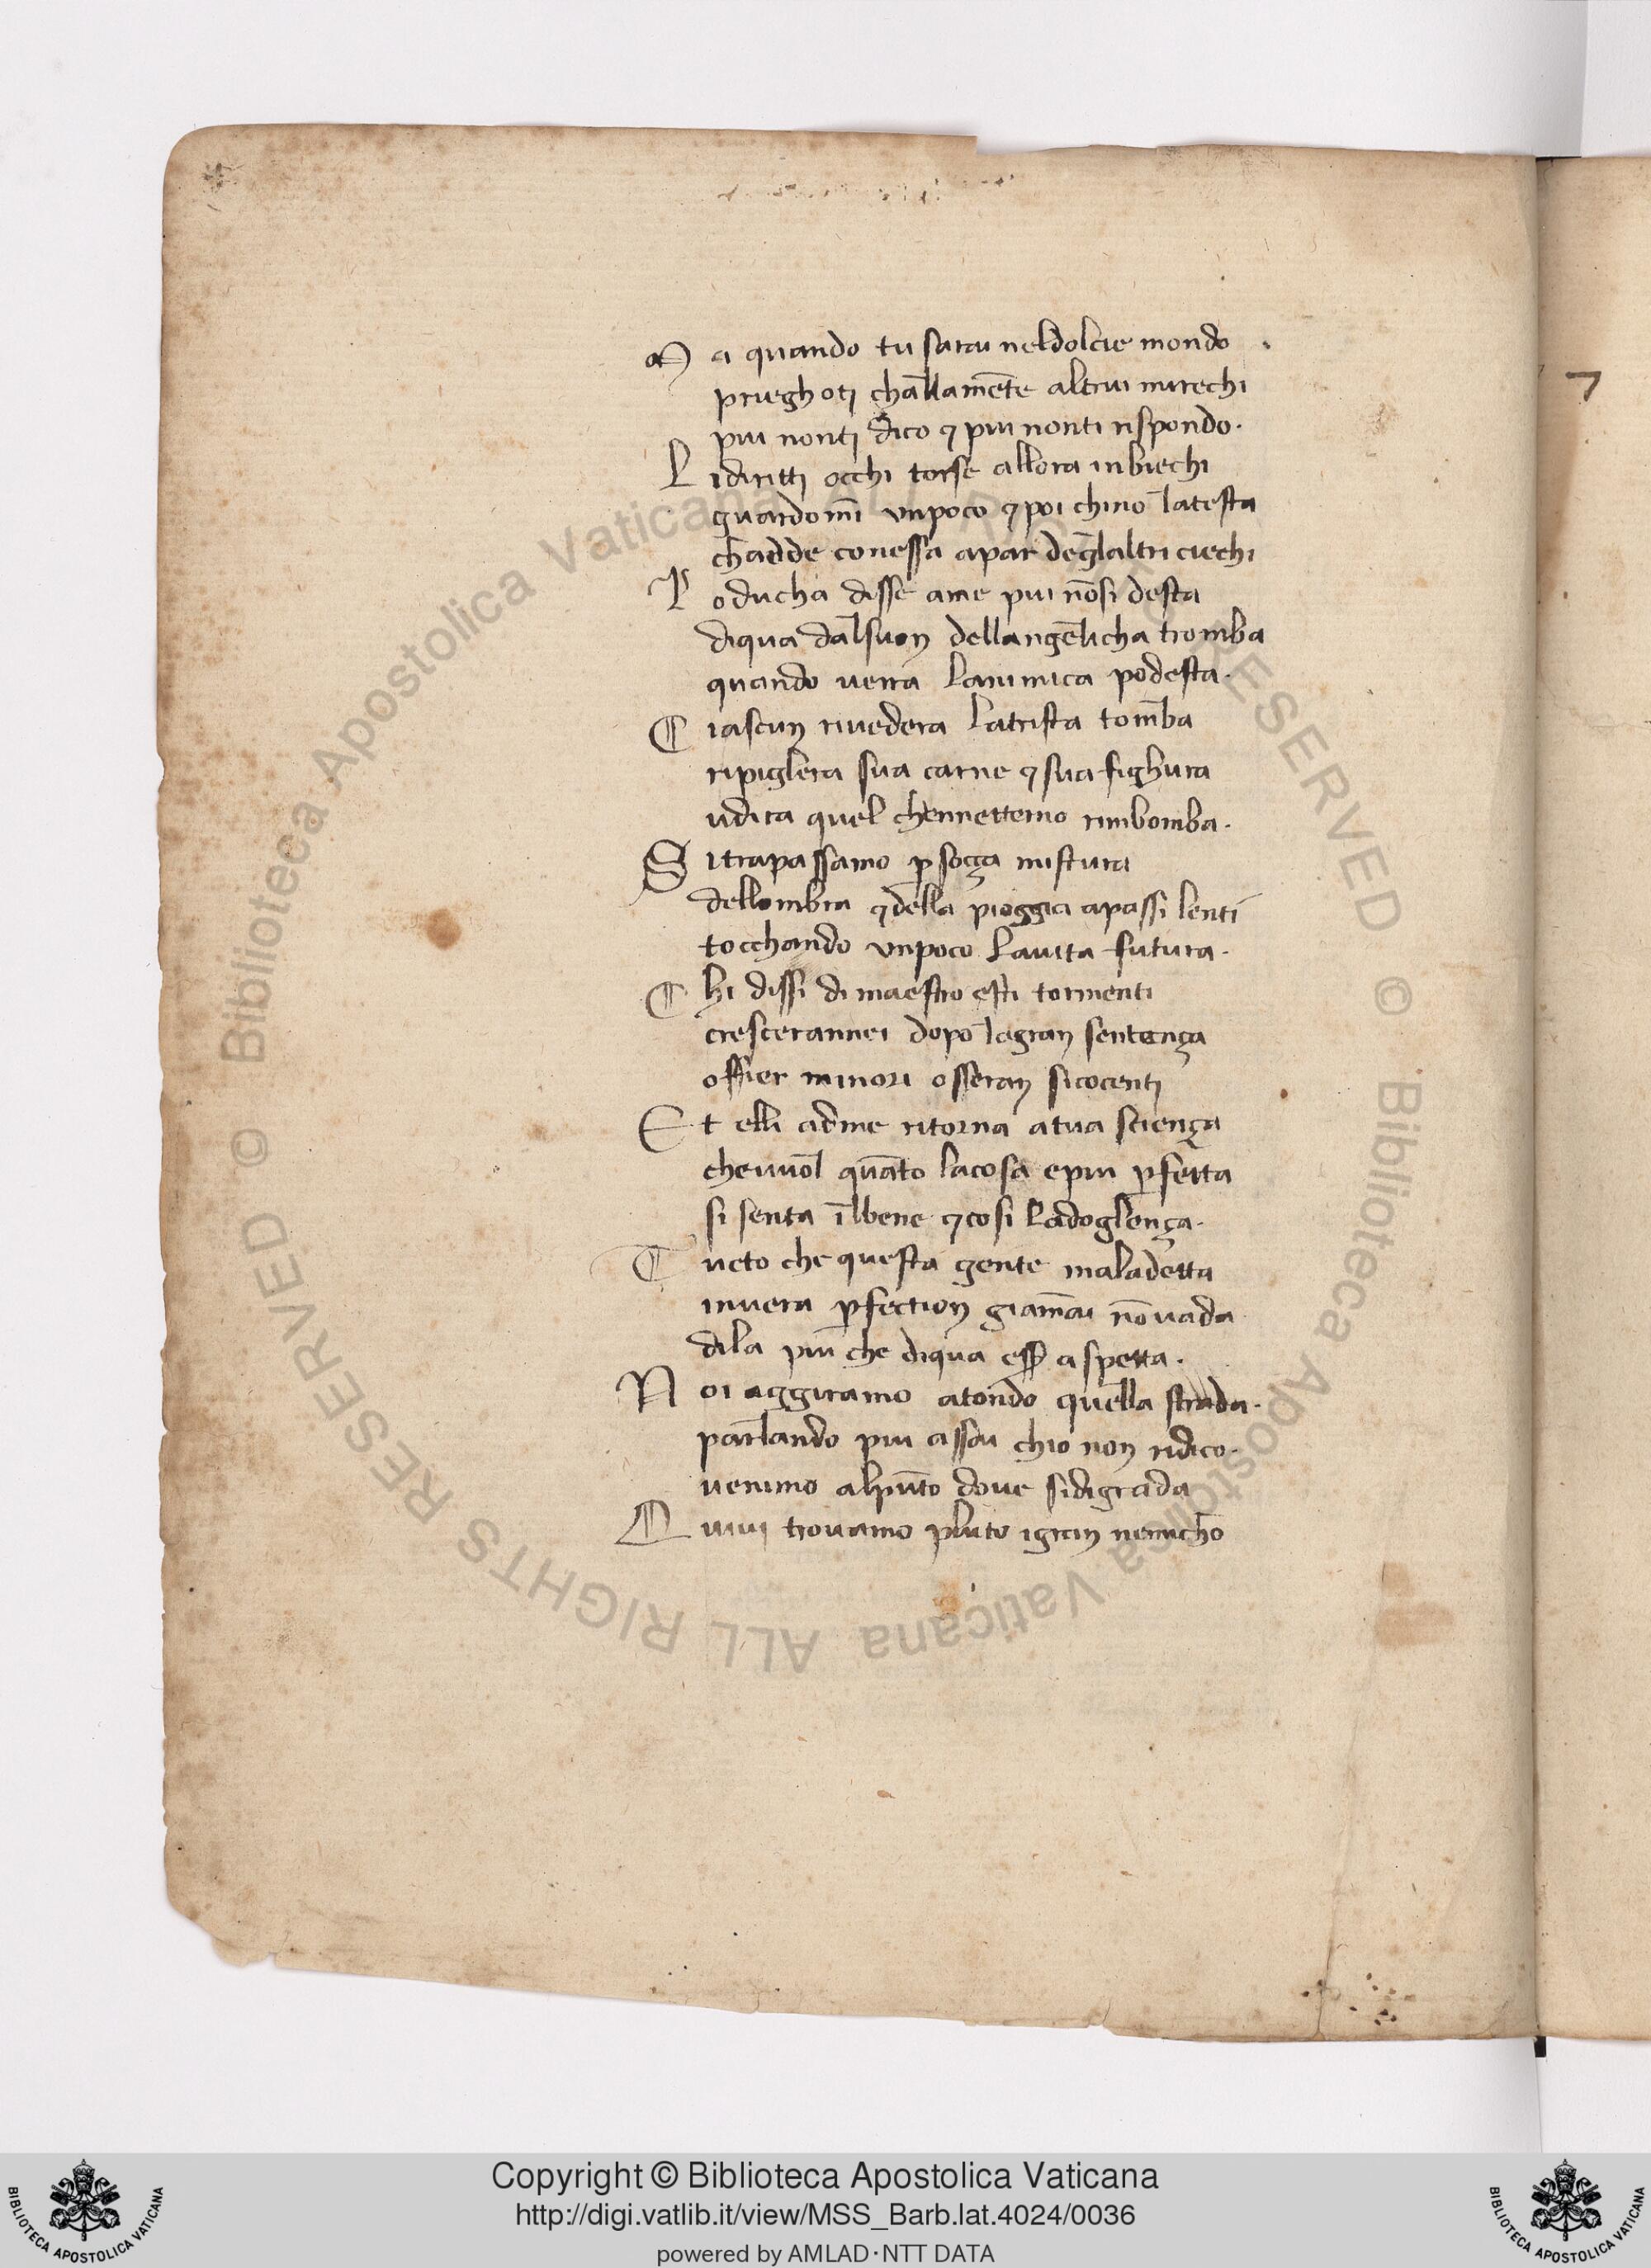 M a quando tu sarai neldolcie mondo .
prieghoti challamẽte altrui mirechi
piu nonti dico ⁊ piu nonti rispondo.
L idiritti occhi torse allora inbiechi
guardomi unpoco ⁊ poi chino latesta
chadde conessa apar deglaltri ciechi
P oducha disse ame piu nõsi desta
diqua dalsuon dellangelicha tromba
quando uerra lanimica podesta.
C iascun riuedera latrista tomba
ripiglera sua carne ⁊ sua fighura
udira quel chennetterno rimbomba.
S itrapassamo ꝑ soça mistura
dellombra ⁊ della pioggia apassi lenti
tocchando unpoco lauita futura.
C hi dissi di maestro esti tormenti
crescerannei dopo lagran sentença
offier minori osseran sicocenti
E t elli adme ritorna atua sciença
cheuuol quãto lacosa epiu ꝑfetta
si senta ĩlbene ⁊cosi ladoglença.
T ucto che questa gente maladetta
inuera ꝑfection giamai nõuada
dila piu che diqua eẞ aspetta.
N oi aggiramo atondo quella strada.
parlando piu assai chio non ridico.
uenimo alpũto doue sidigrada
Q uiui trouamo pluto igran nemicho
7
Biblioteca Apostolica Vaticana ALL RIGHTS RESERVED ©
Biblioteca Apostolica Vaticana ALL RIGHTS RESERVED ©
Copyright © Biblioteca Apostolica Vaticana
http://digi.vatlib.it/view/MSS_Barb.lat.4024/0036
powered by AMLAD·NTT DATA
BIBLIOTECA APOSTOLICA VATICANA
BIBLIOTECA APOSTOLICA VATICANA